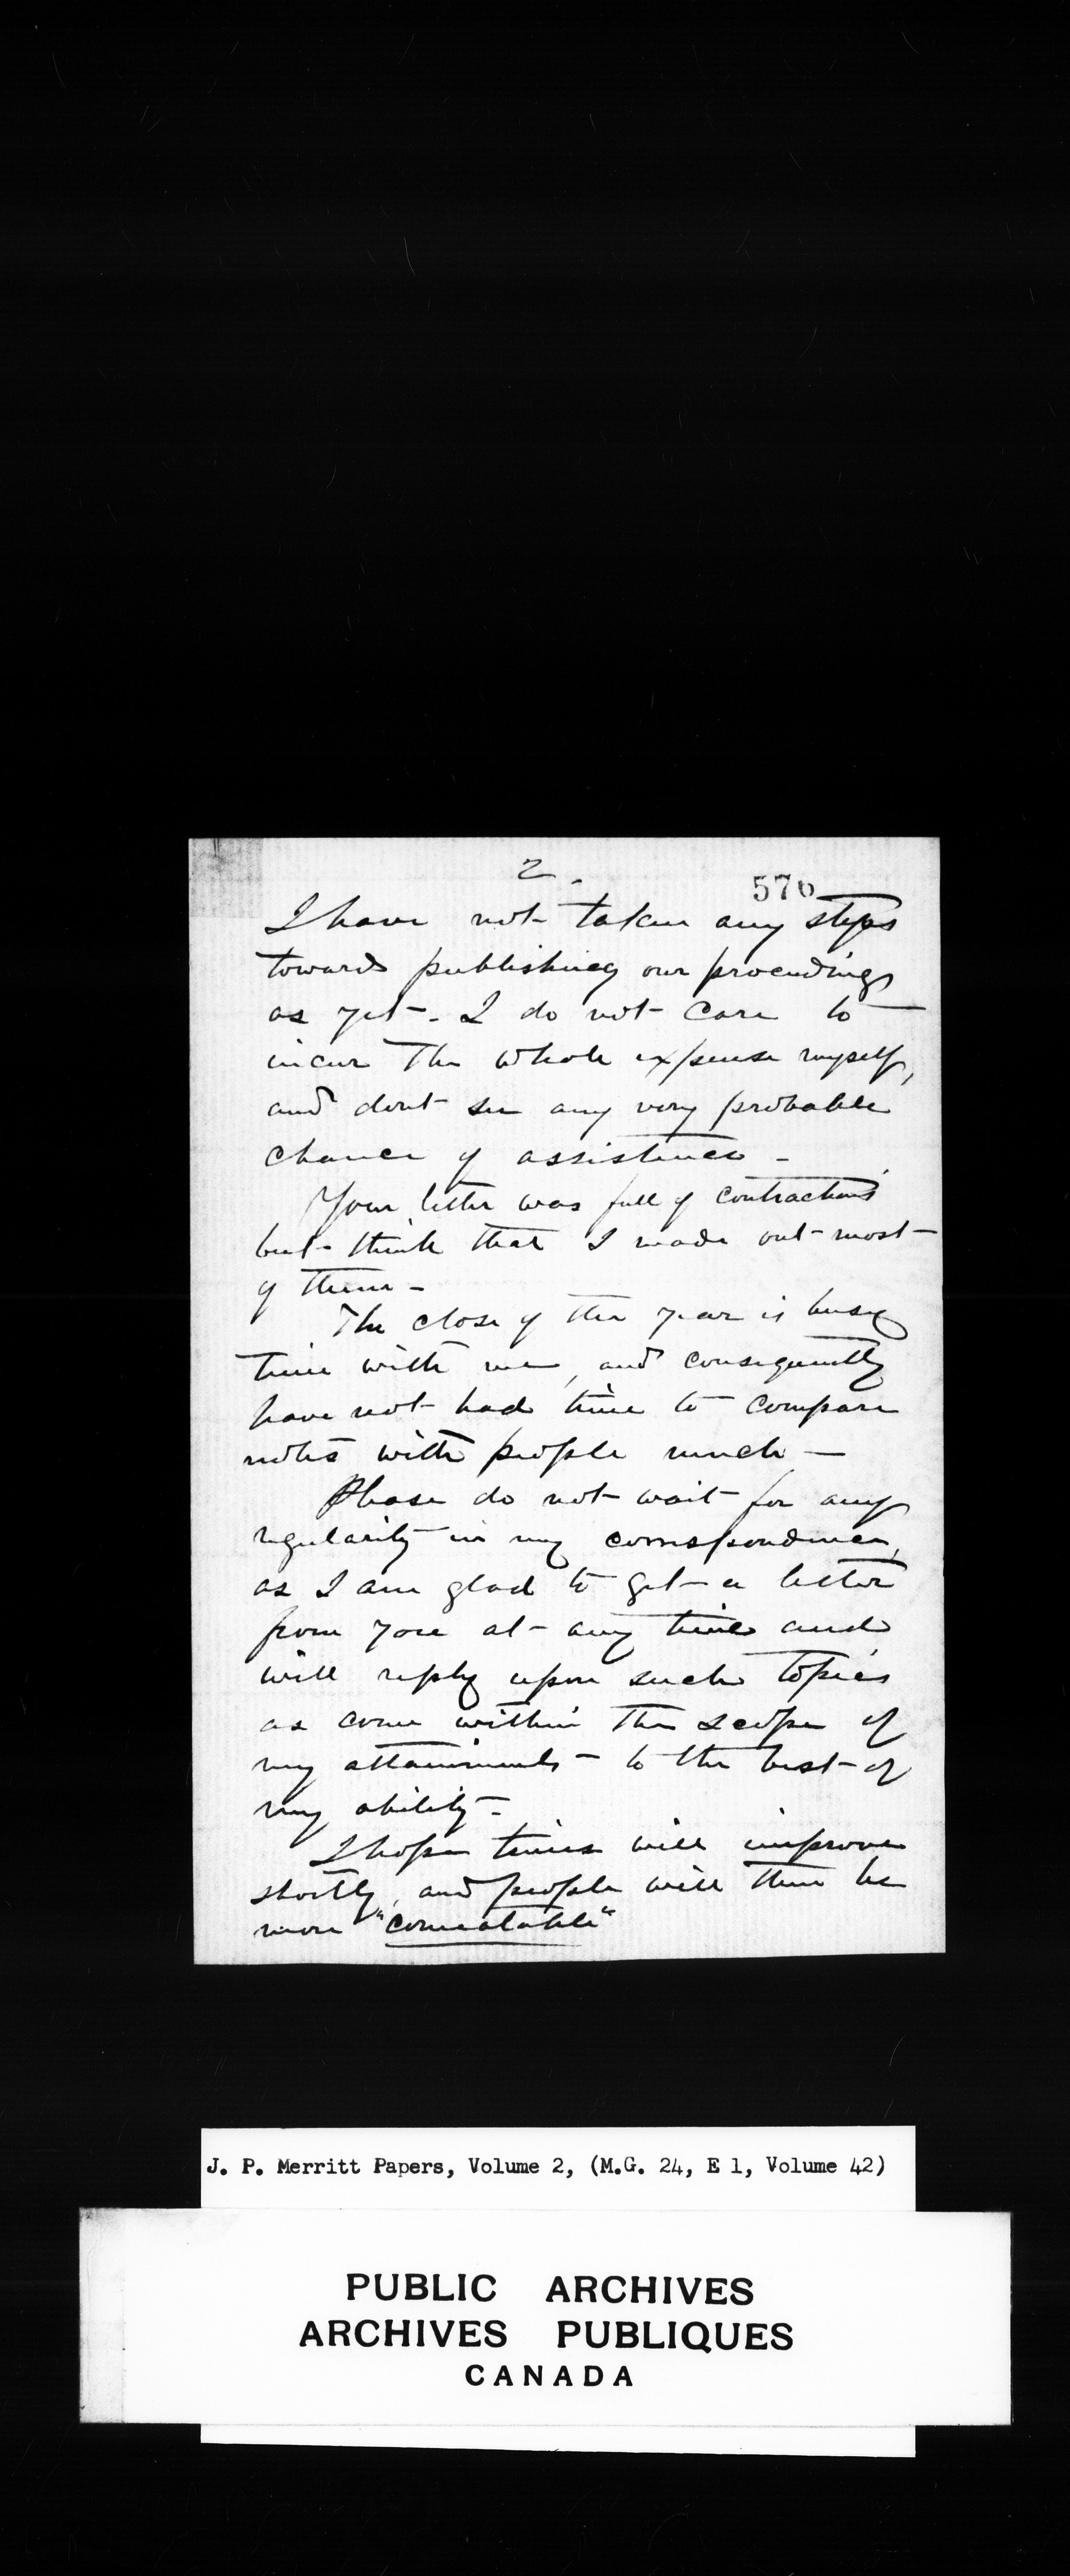 2.
576
I have not taken any steps
towards publishing our proceedings
as yet. I do not care to
incur the whole expense myself,
and dont see any very probable
chance of assistance -
Your letter was full of contractions
but think that I made out most
of them -
The close of the year is busy
time with me, and consequently
have not had time to compare
notes with people much -
Please do not wait for any
regularity in my correspondence,
as I am glad to get a letter
from you at any time and
will reply upon such topics
as come within the scope of
my attainments - to the best of
my ability -
I hope times will improve
shortly, and people will then be
more "comeatable"
J. P. Merritt Papers, Volume 2, (M.G. 24, E 1, Volume 42)
PUBLIC ARCHIVES
ARCHIVES PUBLIQUES
CANADA